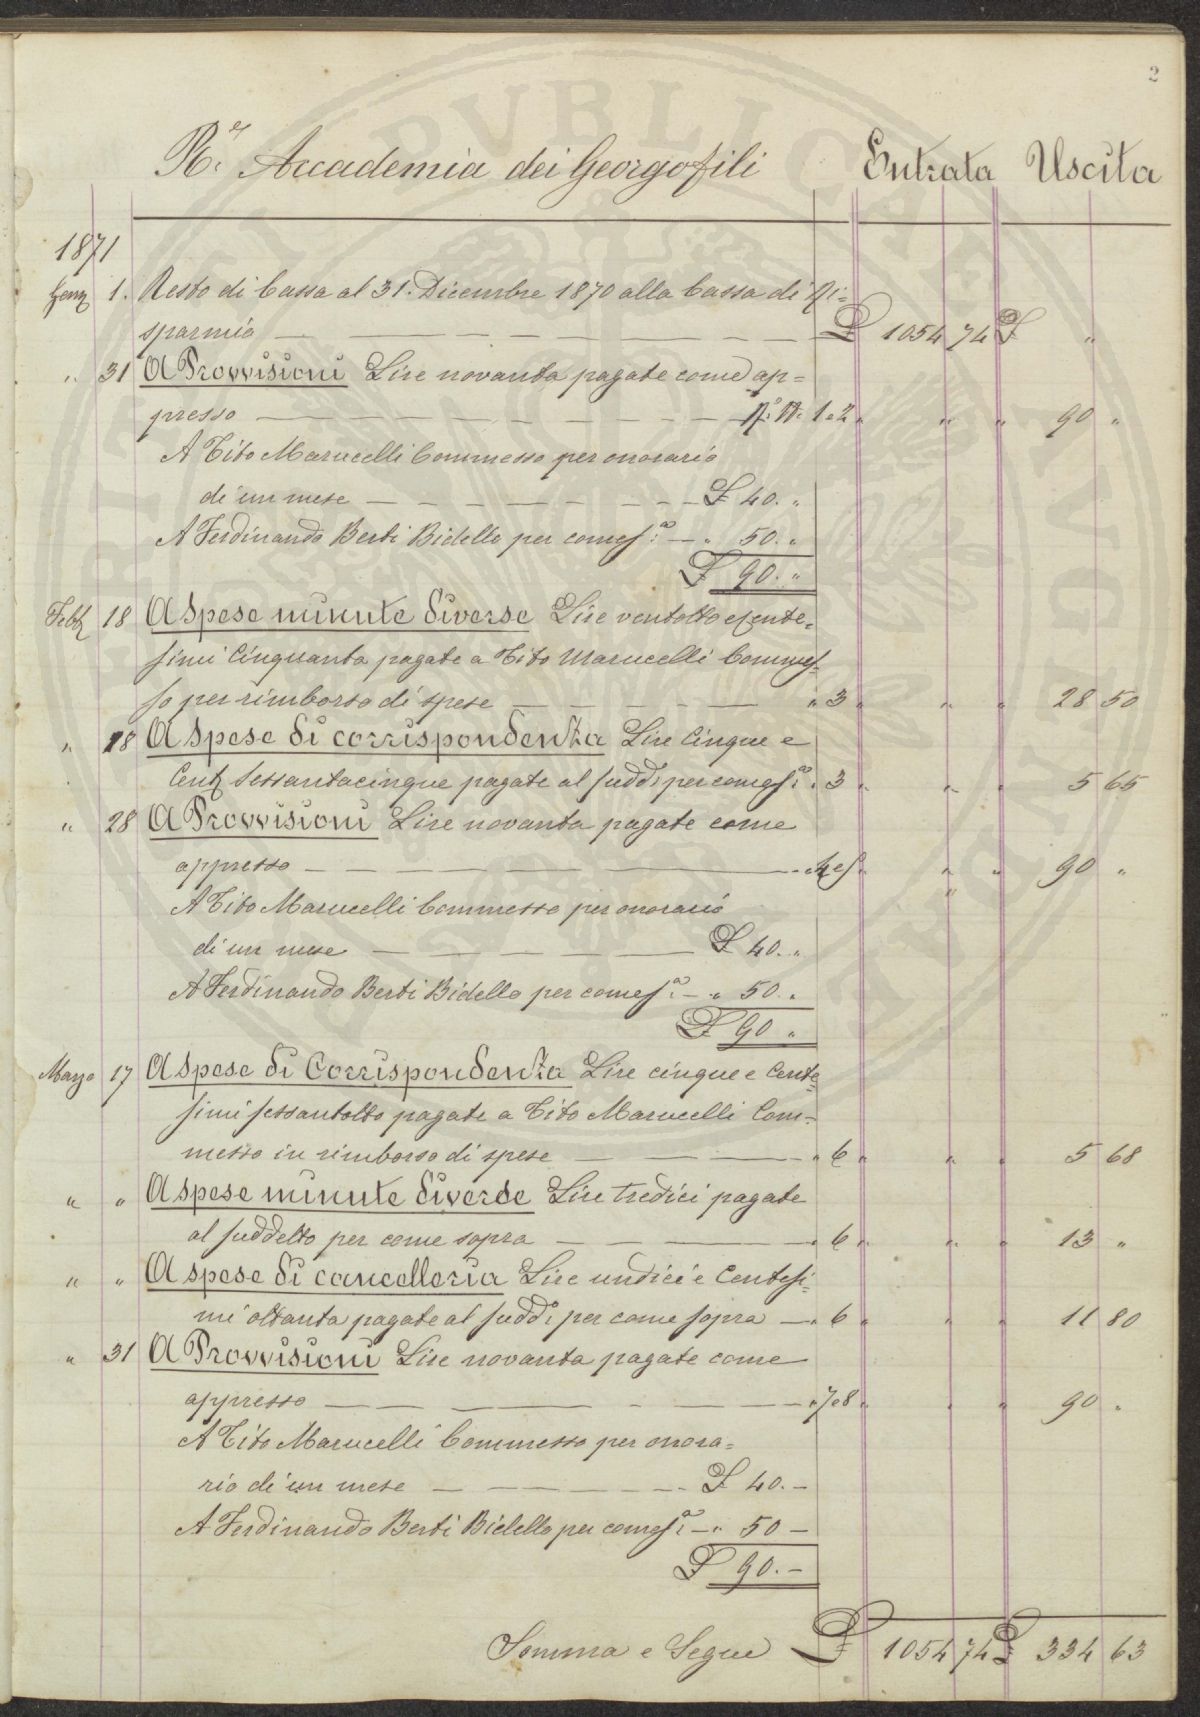 2
R.e Accademia dei Georgofili Entrata Uscita
1871
Genn 1. Resto di Cassa al 31. Dicembre 1870 alla Cassa di Ri=
sparmio — — — — — — — £ 1054 74 £ "
" 31 A Provvisioni Lire novanta pagate come ap=
presso — — — — — — N.o 1 e 2 " " " 90 "
A Tito Marucelli Commesso per onorario
di un mese — — — — — — — £ 40. "
A Ferdinando Berti Bidello per comes.a — " 50. "
£ 90. "
Febb 18 A spese minute diverse Lire ventotto e cente=
simi Cinquanta pagate a Tito Marucelli Commes=
so per rimborso di spese — — — — — " 3 " " " 28 50
" 18 A spese di corrispondenza Lire Cinque e
Cent Sessantacinque pagate al sudd.o per comes.a " 3 " " " 5 65
" 28 A Provvisioni Lire novanta pagate come
appresso — — — — — — " 4 e 5 " " " 90 "
A Tito Marucelli Commesso per onorario "
di un mese — — — — — — £ 40. "
A Ferdinando Berti Bidello per comes.a — " 50. "
£ 90 "
Marzo 17 A spese di Corrispondenza Lire cinque e Cente=
simi sessantotto pagate a Tito Marucelli Com=
messo in rimborso di spese — — — — " 6 " " " 5 68
" " A spese minute diverse Lire tredici pagate
al suddetto per come sopra — — — " 6 " " " 13 "
" " A spese di cancelleria Lire undici e Centesi=
mi ottanta pagate al sudd.o per come sopra — " 6 " " " 11 80
" 31 A Provvisioni Lire novanta pagate come
appresso — — — — — — — " 7 e 8 " " " 90 "
A Tito Marucelli Commesso per onora=
rio di un mese — — — — — — £ 40. —
A Ferdinando Berti Bidello per comes.a — " 50 —
£ 90. —
Somma e Segue £ 1054 74 £ 334 63